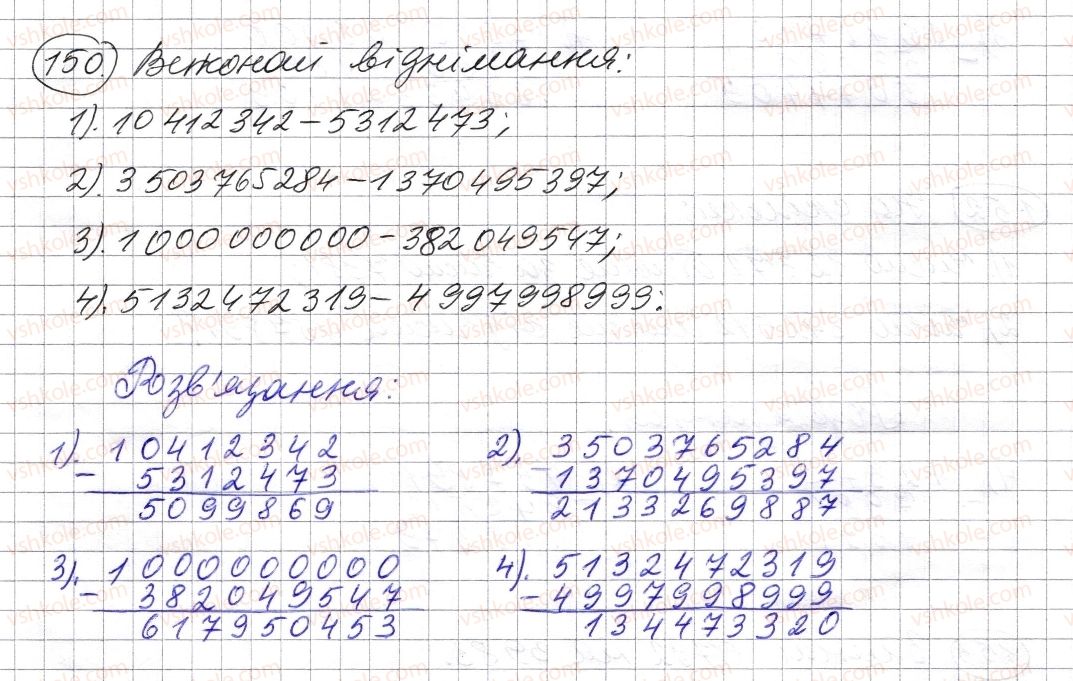 150. Виконай віднімання:
1). 10 412 342 – 5312 473;
2). 3 503 765 284 – 1370 495 397;
3). 1 000 000 000 – 382 049 547;
4). 5132 472 319 – 4 997 998 999:
Розв'язання:
1). 10412342
– 5312473
5099869
2). 3503765284
– 1370495397
2133269887
3). 1000000000
– 382049547
617950453
4). 5132472319
– 4997998999
134473320